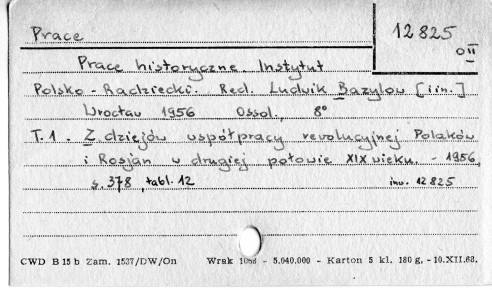 Prace
12825
OII
Prace historyczne. Instytut
Polsko-Radziecki. Red. Ludwik Bazylow [i in.]
Wrocław 1956 Ossol. 8°
T. 1. Z dziejów współpracy rewolucyjnej Polaków
i Rosjan w drugiej połowie XIX wieku. - 1956,
s. 378, tabl. 12
inw. 12825
CWD B 15 b Zam. 1537/DW/On Wrak - 5.040.000 - Karton 5 kl. 180 g. - 10.XII.68.